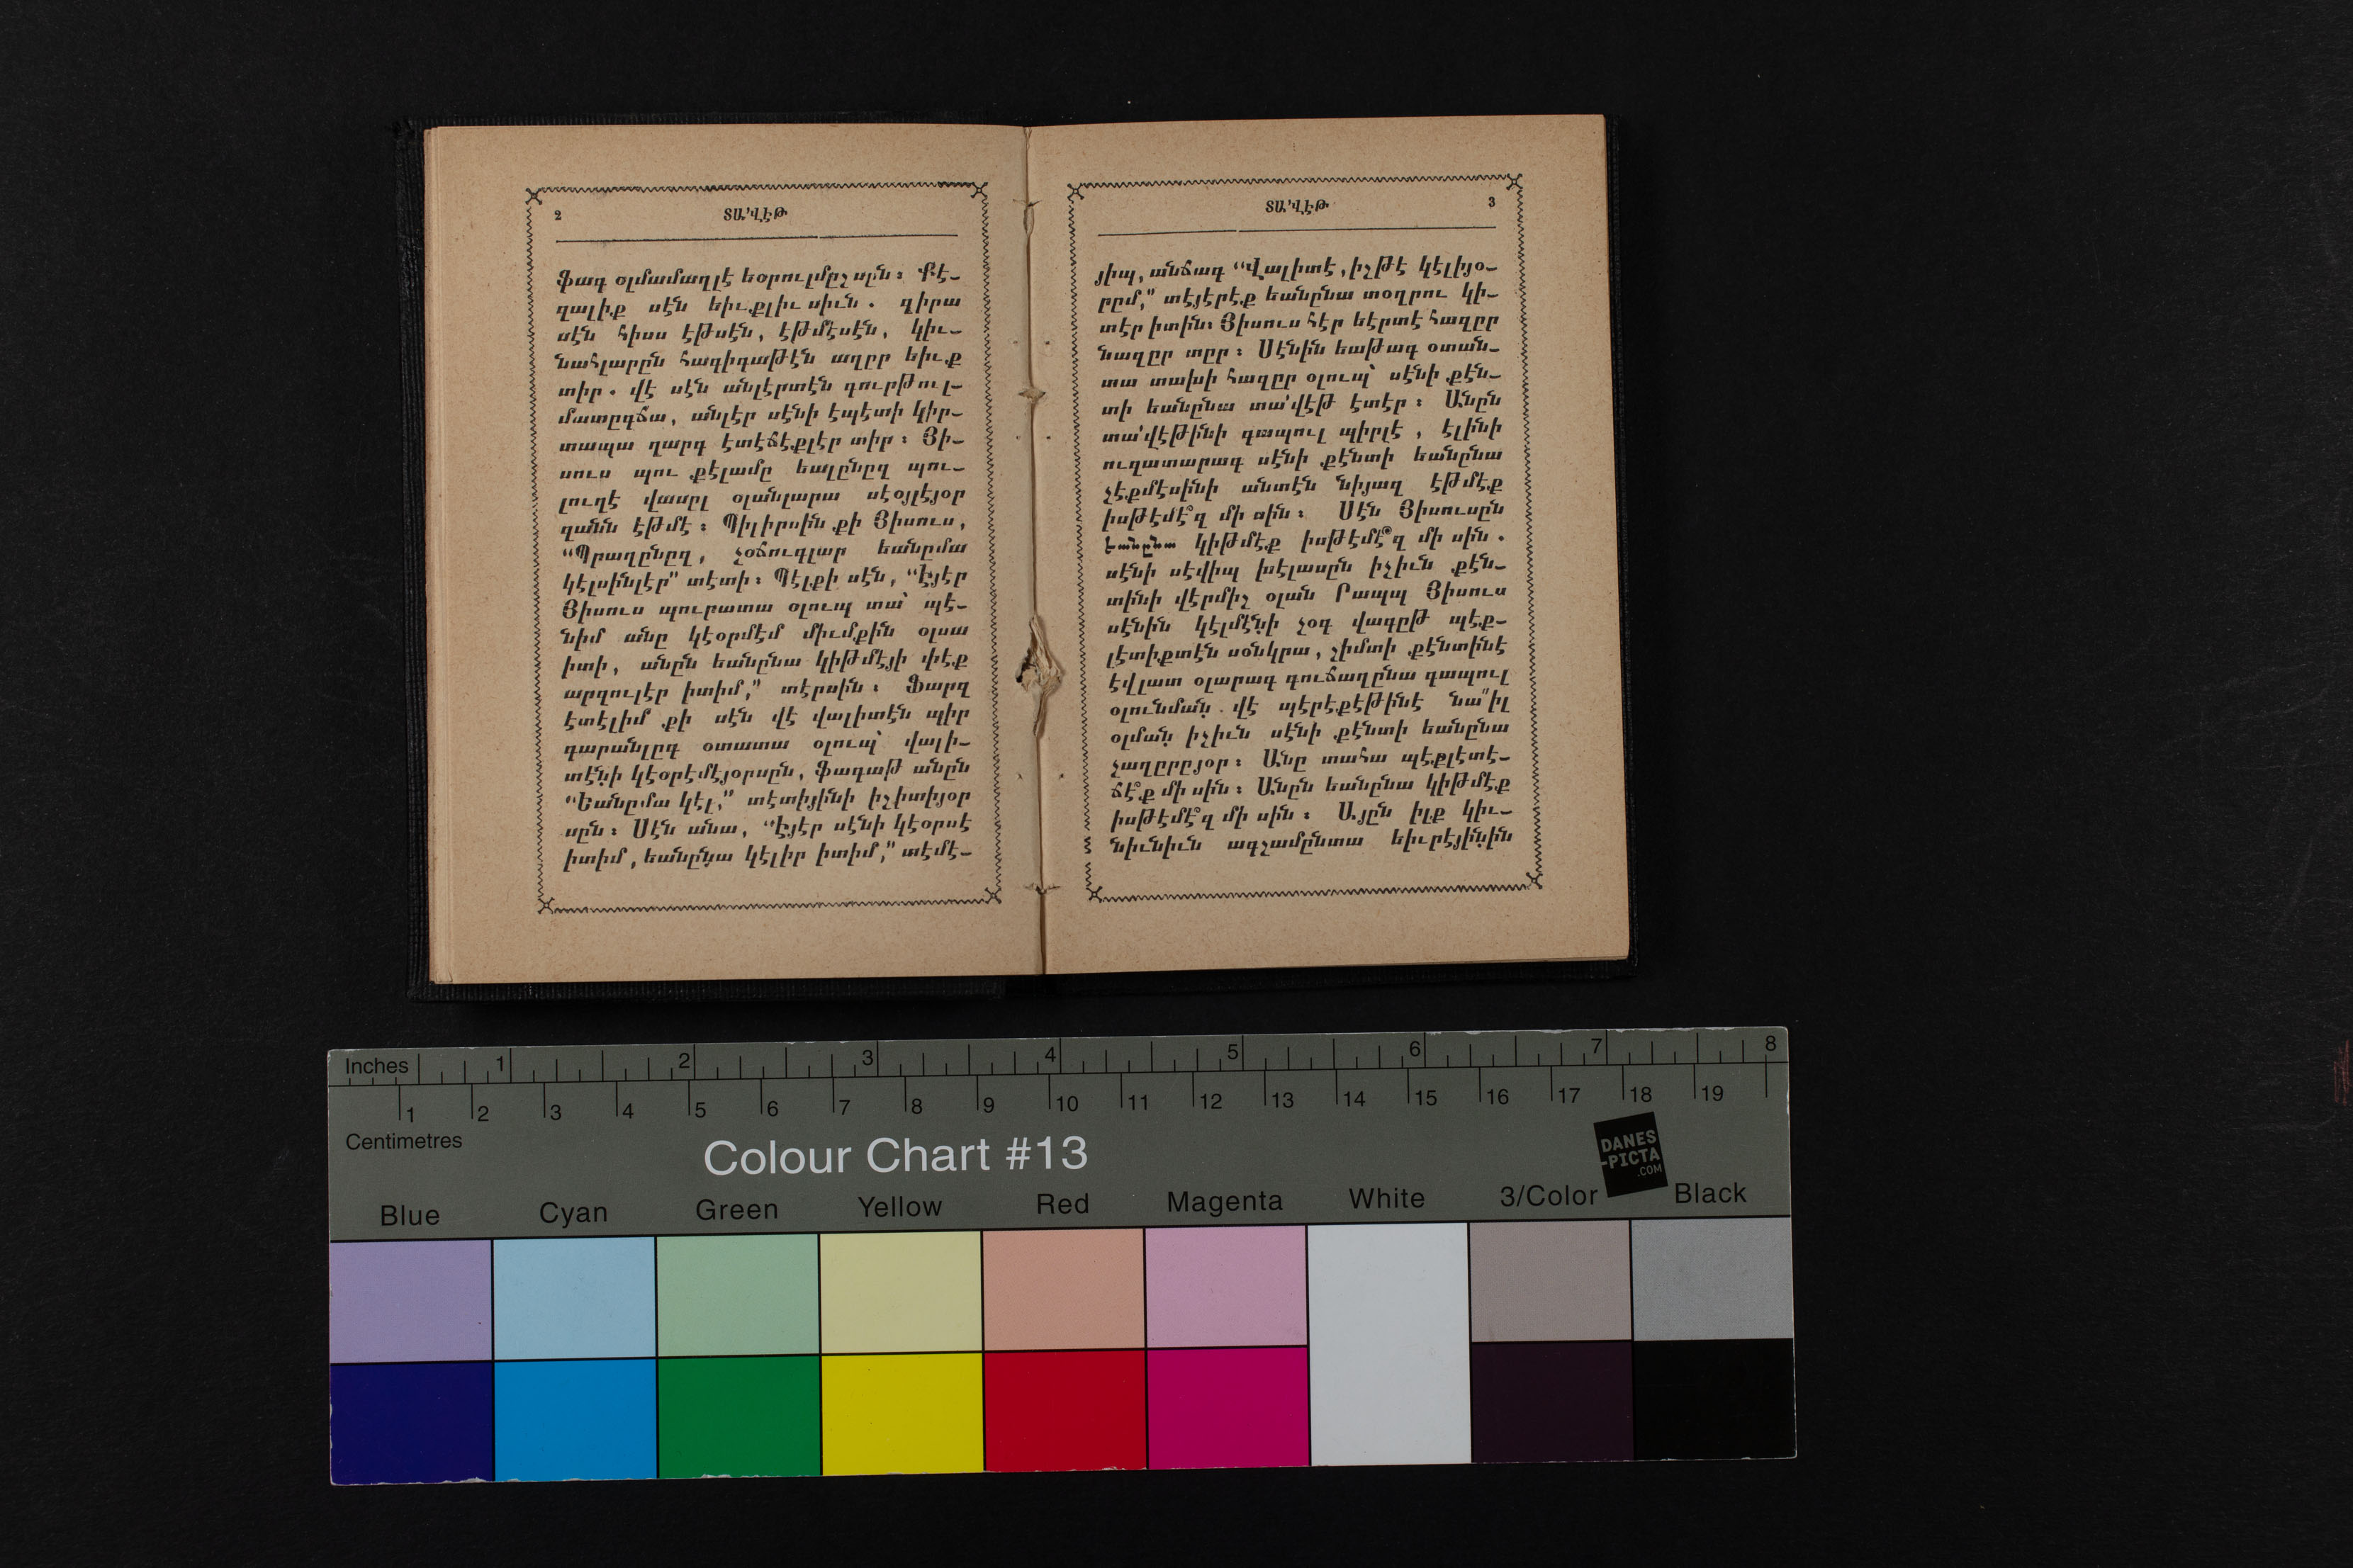 2 ՏԱ՛ՎԷԹ
ֆագ օլմամաղլէ եօրուլմըշ սըն։ Քէ-
զալիք սէն եիւքլիւ սիւն. զիրա
սէն հիսս էթսէն, էթմէսէն, կիւ-
նահլարըն հագիգաթէն աղըր եիւք
տիր. վէ սէն անլէրտէն գուրթուլ-
մատըգճա, անլէր սէնի էպէտի կիր-
տապա ղարգ էտէճէքլէր տիր։ Յի-
սուս պու քէլամը եալընըզ պու-
լուղէ վասըլ օլանլարա սէօյլէյօր
զանն էթմէ։ Պիլիրսին քի Յիսուս,
“Պրաղընըզ, չօճուգլար եանըմա
կէլսինլէր” տէտի։ Պէլքի սէն, “Էյէր
Յիսուս պուրատա օլուպ տա՝ պէ-
նիմ անը կէօրմէմ միւմքին օլսա
իտի, անըն եանընա կիթմէյի փէք
արզուլէր իտիմ,” տէրսին։ Ֆարզ
էտէլիմ քի սէն վէ վալիտէն պիր
գարանլըգ օտատա օլուպ՝ վալի-
տէնի կէօրէմէյօրսըն, ֆագաթ անըն
“Եանըմա կէլ,” տէտիյինի իշիտիյօր
սըն։ Սէն անա, “Էյէր սէնի կէօրսէ
իտիմ, եանընա կէլիր իտիմ,” տէմէ-
ՏԱ՛ՎԷԹ 3
յիպ, անճագ “Վալիտէ, իշթէ կէլիյօ-
րըմ,” տէյէրէք եանընա տօղրու կի-
տէր իտին։ Յիսուս հէր եէրտէ հազըր
նազըր տըր։ Սէնին եաթագ օտան-
տա տախի հազըր օլուպ՝ սէնի քէն-
տի եանընա տա՛վէթ էտէր։ Անըն
տա՛վէթինի գապուլ պիրլէ, էլինի
ուզատարագ սէնի քէնտի եանընա
չէքմէսինի անտէն նիյազ էթմէք
իսթէմէ՞զ մի սին։ Սէն Յիսուսըն
եանընա կիթմէք իսթէմէ՞զ մի սին.
սէնի սէվիպ խէլասըն իչիւն քէն-
տինի վէրմիշ օլան Րապպ Յիսուս
սէնին կէլմէնի չօգ վագըթ պէք-
լէտիքտէն սօնկրա, շիմտի քէնտինէ
էվլատ օլարագ գուճաղընա գապուլ
օլունման վէ պէրէքէթինէ նա՛իլ
օլման իչիւն սէնի քէնտի եանընա
չաղըրըյօր։ Անը տահա պէքլէտէ-
ճէ՞ք մի սին։ Անըն եանընա կիթմէք
իսթէմէ՞զ մի սին։ Այըն իլք կիւ-
նիւնիւն ագշամընտա եիւրէյինին
Inches 1 2 3 4 5 6 7 8
1 2 3 4 5 6 7 8 9 10 11 12 13 14 15 16 17 18 19
Centimetres
Colour Chart #13
DANES
-PICTA
.COM
Blue Cyan Green Yellow Red Magenta White 3/Color Black